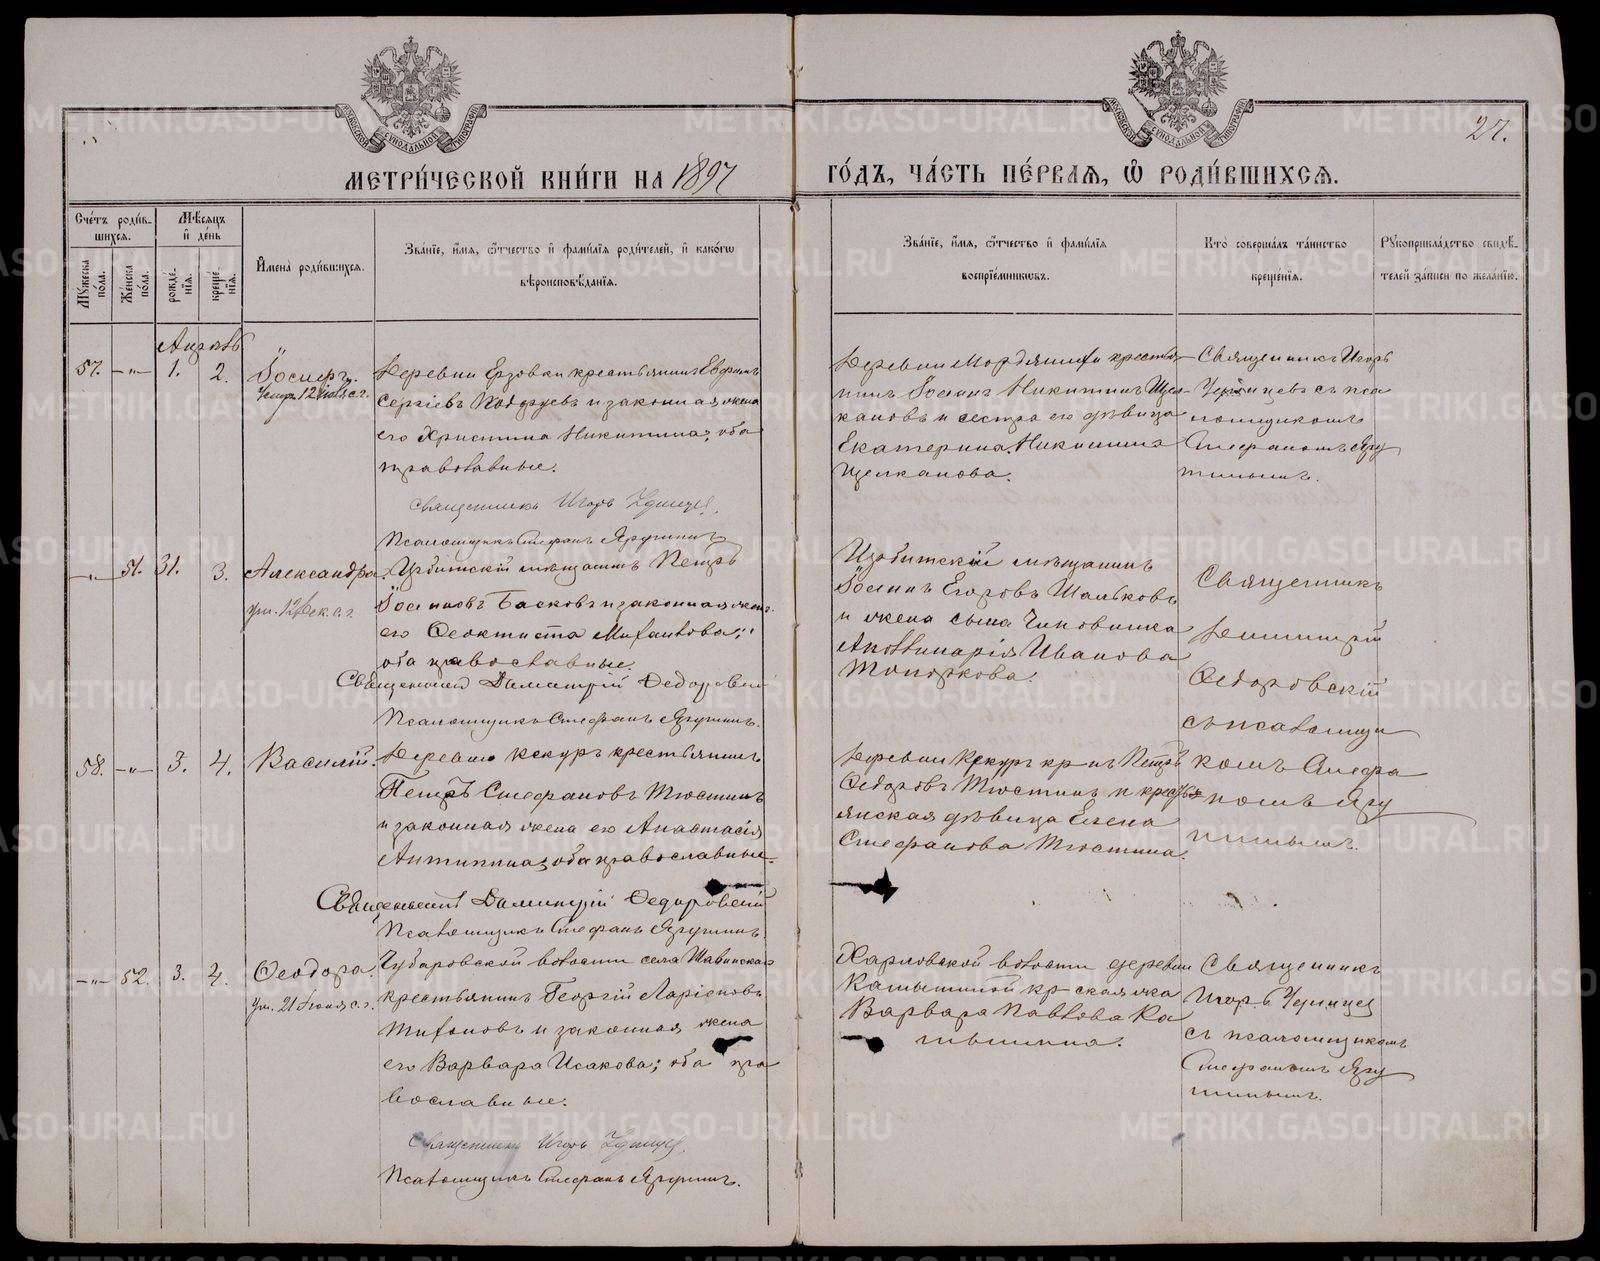 27.
МЕТРИ́ЧЕСКОЙ КНИ́ГИ НА 1897
ГО́ДЪ, ЧА́СТЬ ПЕ́РВАЯ, Ѡ РОДИ́ВШИХСЯ.
Сче́тъ роди́в-
шихся.
Му́жеска по́ла.
Же́нска по́ла.
Мѣ́сяцъ и де́нь
рожде́-
нія.
креще́-
нія.
Имена̀ роди́вшихся.
Зва́ніе, и́мя, о́тчество и фами́лія роди́телей, и како́гѡ
вѣроисповѣ́данія.
Зва́ніе, и́мя, о́тчество и фами́лія
воспріе́мниковъ.
Кто̀ соверша́лъ та́инство
креще́нія.
Рукоприкла́дство свидѣ́-
телей за́писи по жела́нію.
57. —„— 1. 2. Іосифъ.
Деревни Ерзовки крестьянинъ
Сергіевъ и законная жена
его Христина Никитина; оба
православные.
Священникъ Игорь
Псаломщикъ Стефанъ Ягушинъ
Деревни крестья-
нинъ Іосифъ Никитинъ Щел-
кановъ и сестра его дѣвица
Екатерина Никитина
Щелканова.
Священникъ Игорь
съ пса
ломщикомъ
Стефаномъ Ягу
шинымъ.
—„— 51. 31. 3. Александра.
Ирбитскій мѣщанинъ Петръ
Басковъ и законная жена
его Феоктиста Михаилова;
оба православные.
Священникъ Димитрій Федоровскій
Псаломщикъ Стефанъ Ягушинъ.
Ирбитскій мѣщанинъ
Егоровъ Шальковъ
и жена сына чиновника
Аполлинарія Иванова
Топоркова.
Священникъ
Димитрій
Федоровскій
съ псаломщи
комъ Стефа
номъ Ягу
шинымъ.
58. —„— 3. 4. Василій.
Деревни Кекуръ крестьянинъ
Петръ Стефановъ Тюстинъ
и законная жена его Анастасія
Антипина; оба православные.
Священникъ Димитрій Федоровскій
Псаломщикъ Стефанъ Ягушинъ.
Деревни Кекуръ кр-нъ Петръ
Федоровъ Тюстинъ и кресть-
янская дѣвица Елена
Стефанова Тюстина.
—„— 52. 3. 4. Феодора.
ум. 21 Іюня с. г.
Чубаровской волости села
крестьянинъ Георгій Ларіоновъ
Тихоновъ и законная жена
его Варвара Исакова; оба пра
вославные.
Священникъ Игорь
Псаломщикъ Стефанъ Ягушинъ.
Харловской волости деревни
кр-ская жена
Варвара Павлова Ка
Священникъ
Игорь
съ псаломщикомъ
Стефаномъ Ягу
шинымъ.